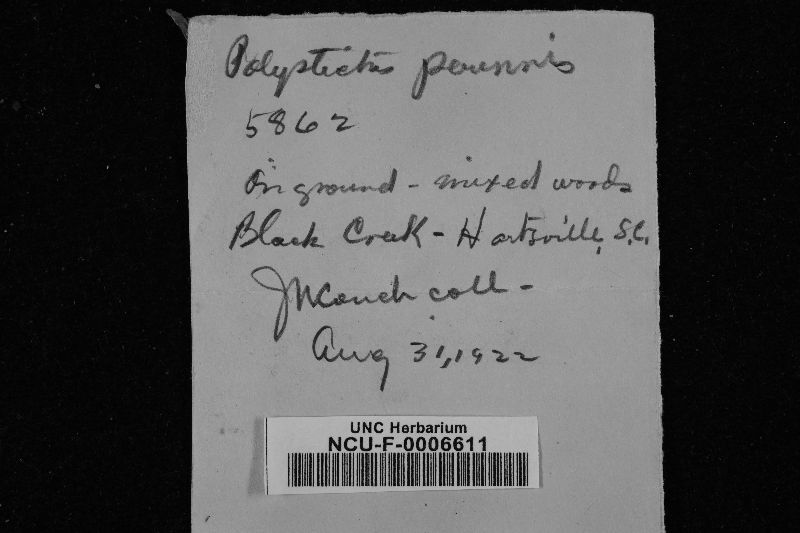 Polystictus perennis
5862
On ground - mixed woods
Black Creek - Hartsville, S.C.
JNCouch coll -
Aug 31, 1922
UNC Herbarium
NCU-F-0006611